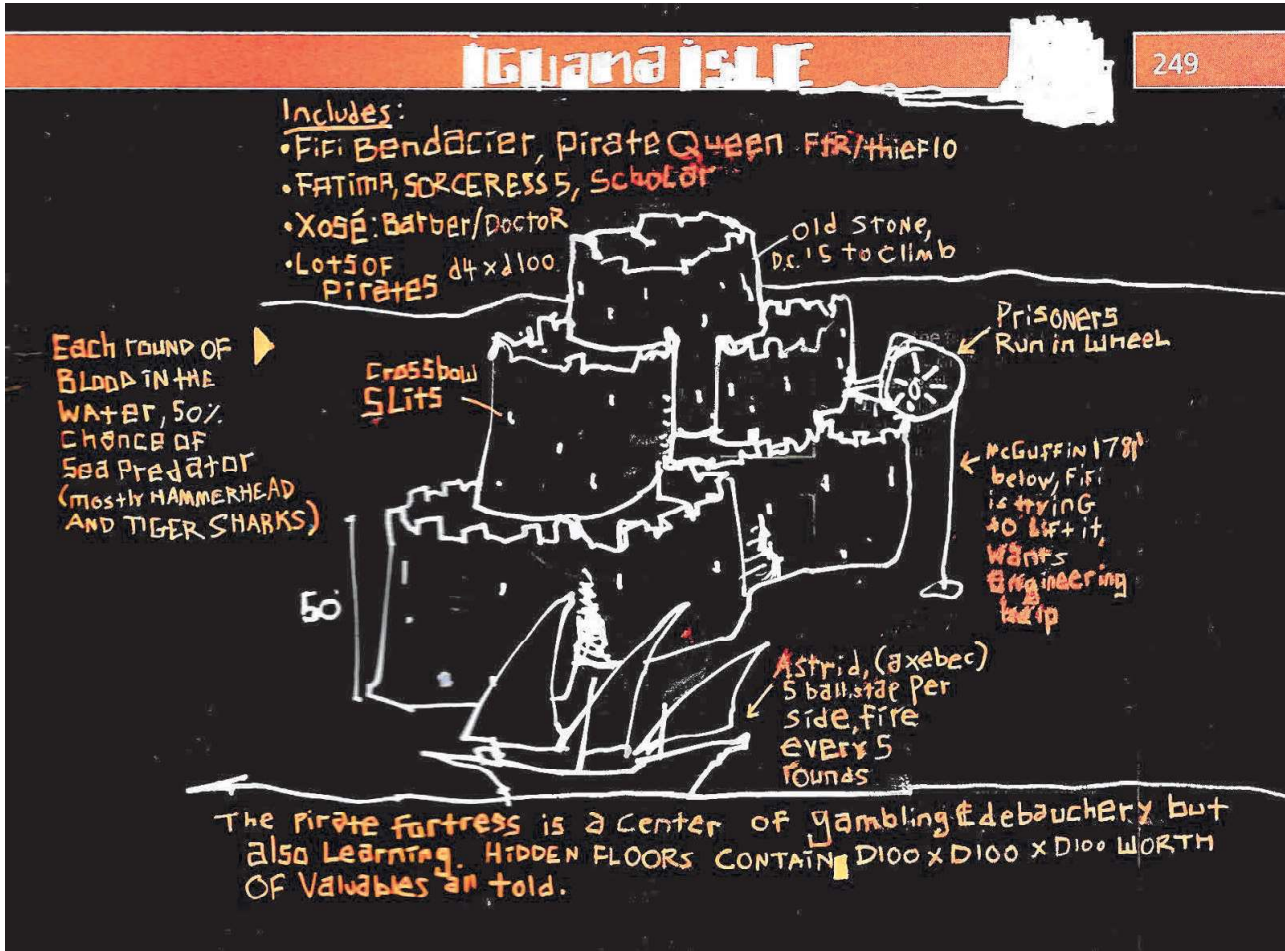 IGUana ISLE
249
Includes:
•FiFi Bendacier, Pirate Queen FtR/thieF10
•FATIMA, SORCERESS 5, Scholar
•Xosé: Barber/DoctoR
•LotS OF d4 x d100.
Pirates
Old STONE,
D.C. 15 to Climb
Prisoners
Run in wheel
Each round OF
BLOOD IN THE
WATER, 50%
Chance OF
Sea Predator
(mostly HAMMERHEAD
AND TIGER SHARKS)
Crossbow
SLits
McGuffin 178'
below, Fifi
is trying
to Lift it,
wants
Engineering
help
50'
Astrid, (axebec)
5 ballistae Per
side, fire
every 5
rounds
The Pirate fortress is a Center of gambling & debauchery but
also Learning. HIDDEN FLOORS CONTAIN D100 x D100 x D100 WORTH
OF Valuables all told.